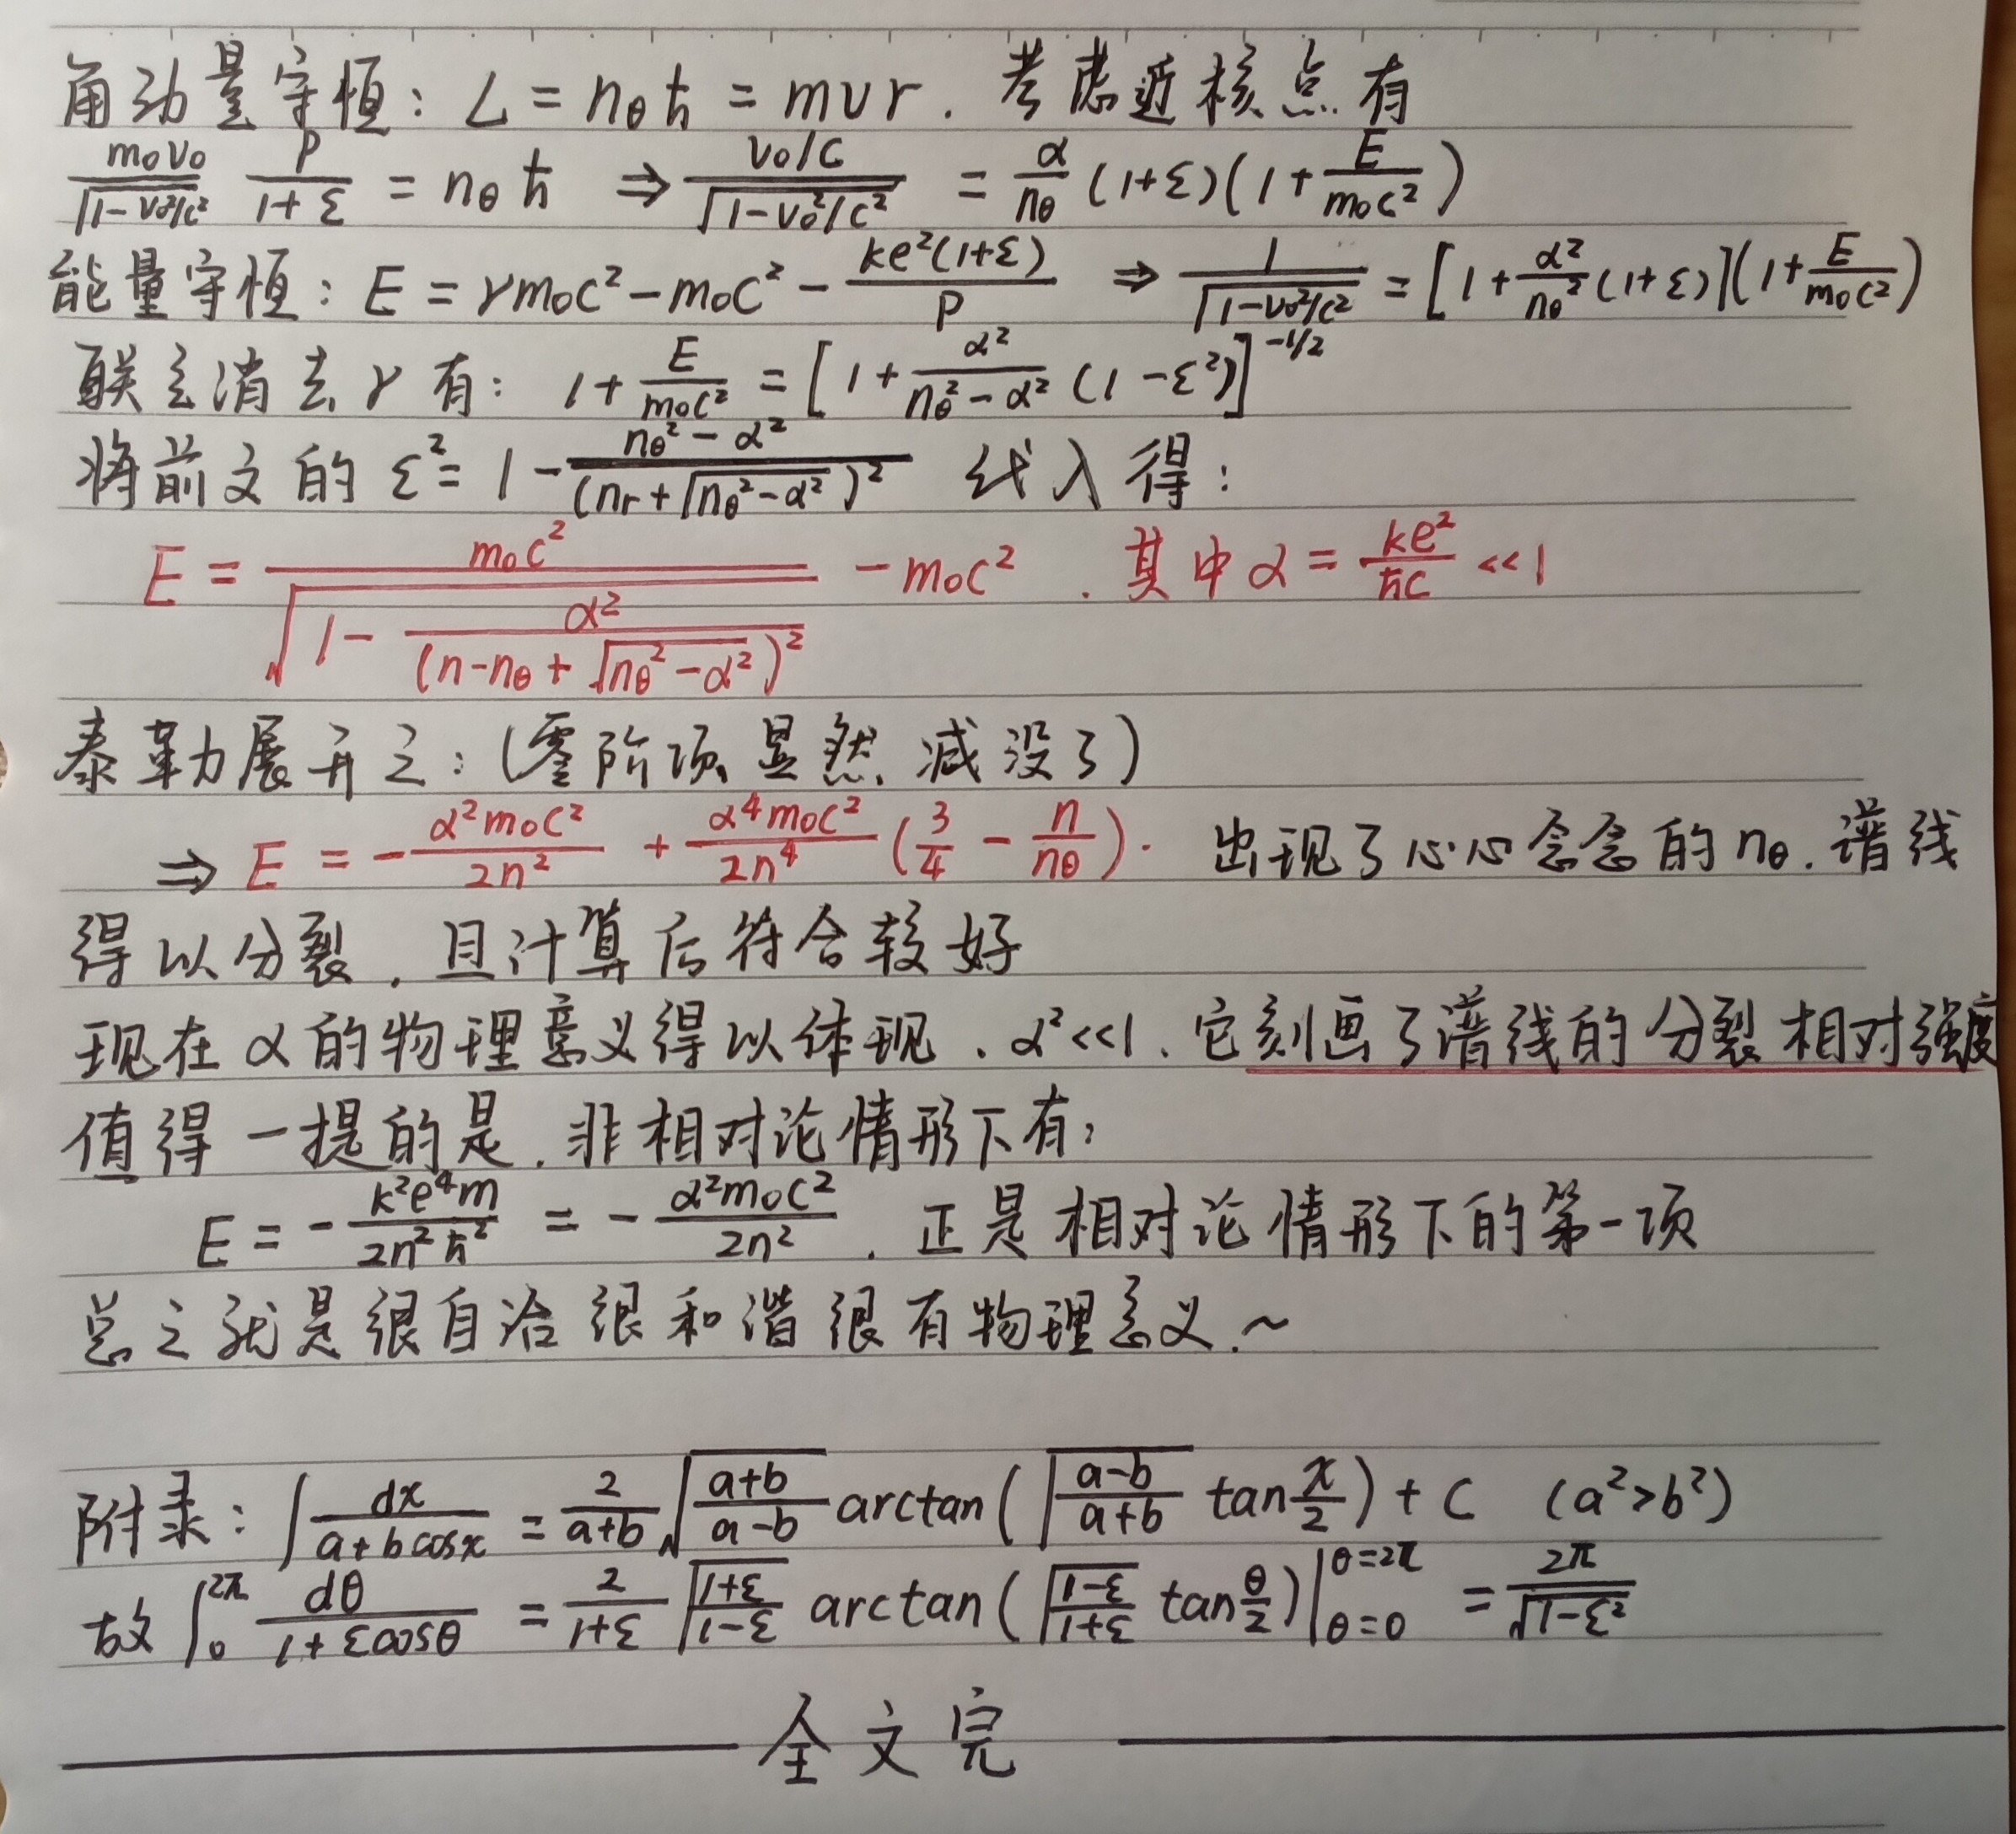 角动量守恒：L = nθ ħ = mvr．考虑近核点有
m₀v₀/√(1-v₀²/c²) · P/(1+ε) = nθ ħ ⇒ (v₀/c)/√(1-v₀²/c²) = α/nθ (1+ε)(1+E/(m₀c²))
能量守恒：E = γm₀c² - m₀c² - ke²(1+ε)/P ⇒ 1/√(1-v₀²/c²) = [1+α²/nθ²(1+ε)](1+E/(m₀c²))
联立消去γ有：1+E/(m₀c²) = [1+α²/(nθ²-α²)(1-ε²)]^(-1/2)
将前文的 ε² = 1 - (nθ²-α²)/(nr+√(nθ²-α²))² 代入得：
E = m₀c²/√(1 - α²/(n-nθ+√(nθ²-α²))²) - m₀c²．其中 α = ke²/(ħc) << 1
泰勒展开之：(零阶项显然减没了)
⇒ E = -α²m₀c²/(2n²) + α⁴m₀c²/(2n⁴) (3/4 - n/nθ)． 出现了心心念念的 nθ．谱线
得以分裂．且计算后符合较好
现在α的物理意义得以体现．α²<<1．它刻画了谱线的分裂相对强度
值得一提的是．非相对论情形下有：
E = -k²e⁴m/(2n²ħ²) = -α²m₀c²/(2n²)．正是相对论情形下的第一项
总之就是很自洽很和谐很有物理意义．~
附录：∫dx/(a+bcosx) = 2/(a+b) √((a+b)/(a-b)) arctan(√((a-b)/(a+b)) tan x/2) + C (a²>b²)
故 ∫₀^2π dθ/(1+εcosθ) = 2/(1+ε) √((1+ε)/(1-ε)) arctan(√((1-ε)/(1+ε)) tan θ/2)|θ=0^θ=2π = 2π/√(1-ε²)
全文完